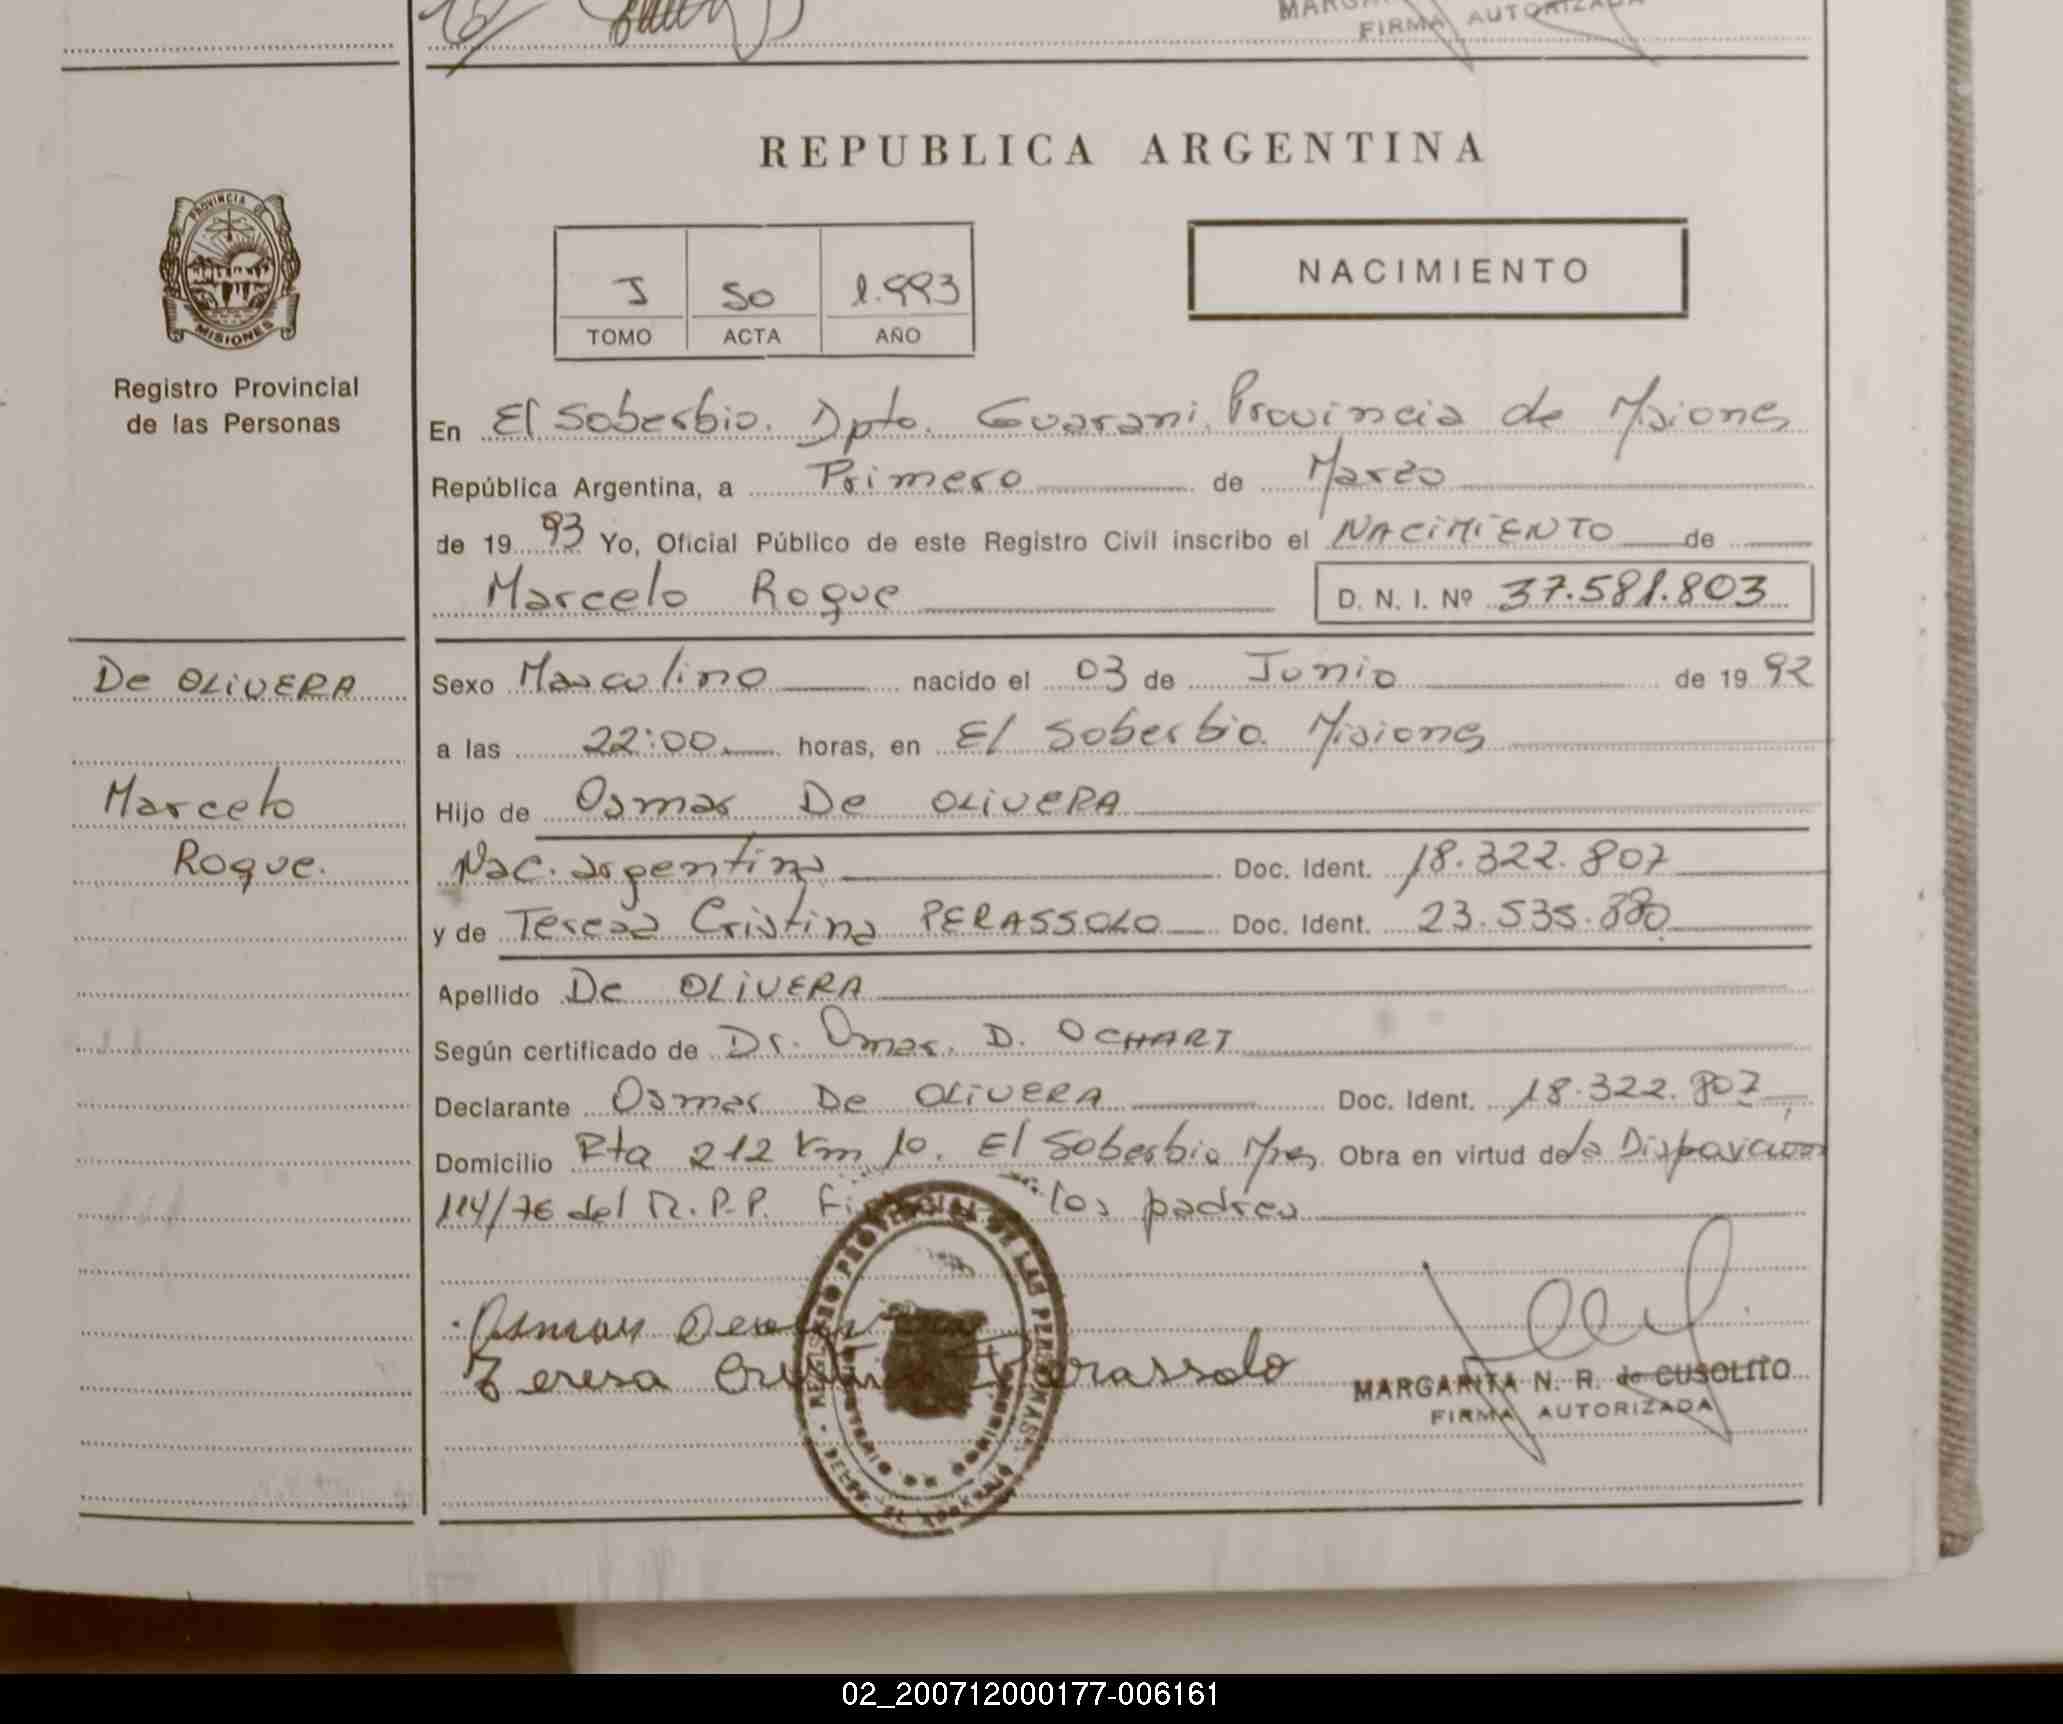 MARGA
FIRMA AUTORIZADA
REPUBLICA ARGENTINA
PROVINCIA DE
MISIONES
Registro Provincial
de las Personas
I 50 1.993
TOMO ACTA AÑO
NACIMIENTO
En El Soberbio. Dpto. Guarani. Provincia de Misiones
República Argentina, a Primero de Marzo
de 19 93 Yo, Oficial Público de este Registro Civil inscribo el NACIMIENTO de
Marcelo Roque D. N. I. Nº 37.581.803
De OLIVERA
Marcelo
Roque.
Sexo Masculino nacido el 03 de Junio de 19 92
a las 22:00 horas, en El Soberbio. Misiones
Hijo de Osmar De OLIVERA
Nac. argentina Doc. Ident. 18.322.807
y de Teresa Cristina PERASSOLO Doc. Ident. 23.535.880
Apellido De OLIVERA
Según certificado de Dr. Omar. D. OCHART
Declarante Osmar De OLIVERA Doc. Ident. 18.322.807
Domicilio Rta 212 Km 10. El Soberbio Mnes Obra en virtud de la Disposicion
114/76 del R.P.P. los padres
Osmar
Teresa Cristina Perassolo
REGISTRO PROVINCIAL DE LAS PERSONAS
MARGARITA N. R. de CUSOLITO
FIRMA AUTORIZADA
02_200712000177-006161